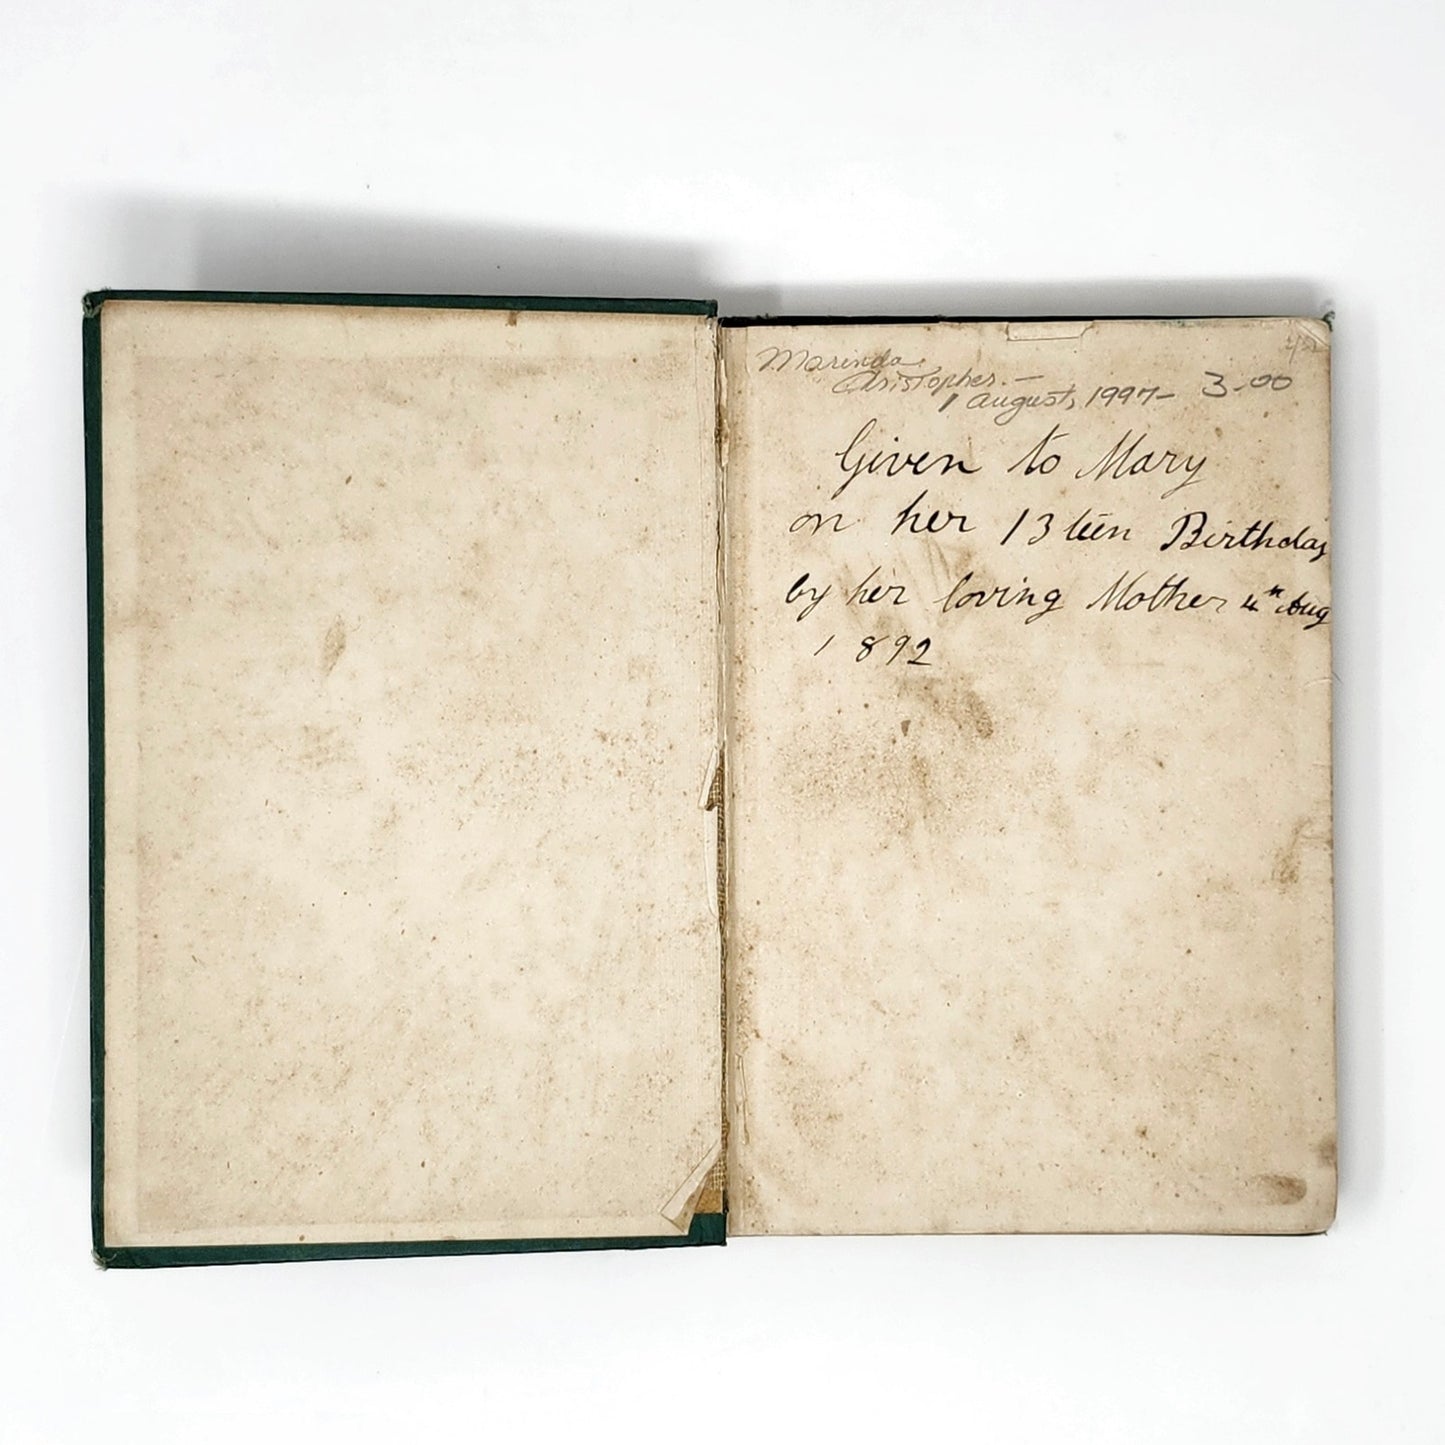 Marinda
Cristopher. —
1 August, 1997 — 3-00
Given to Mary
on her 13 teen Birthday
by her loving Mother 4th Aug
1892